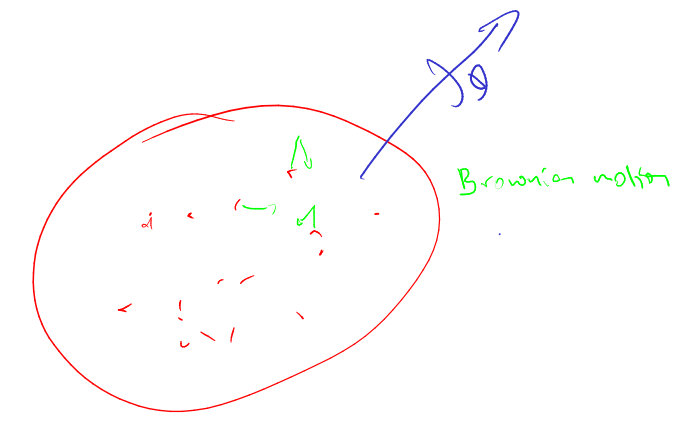 θ
Brownian motion